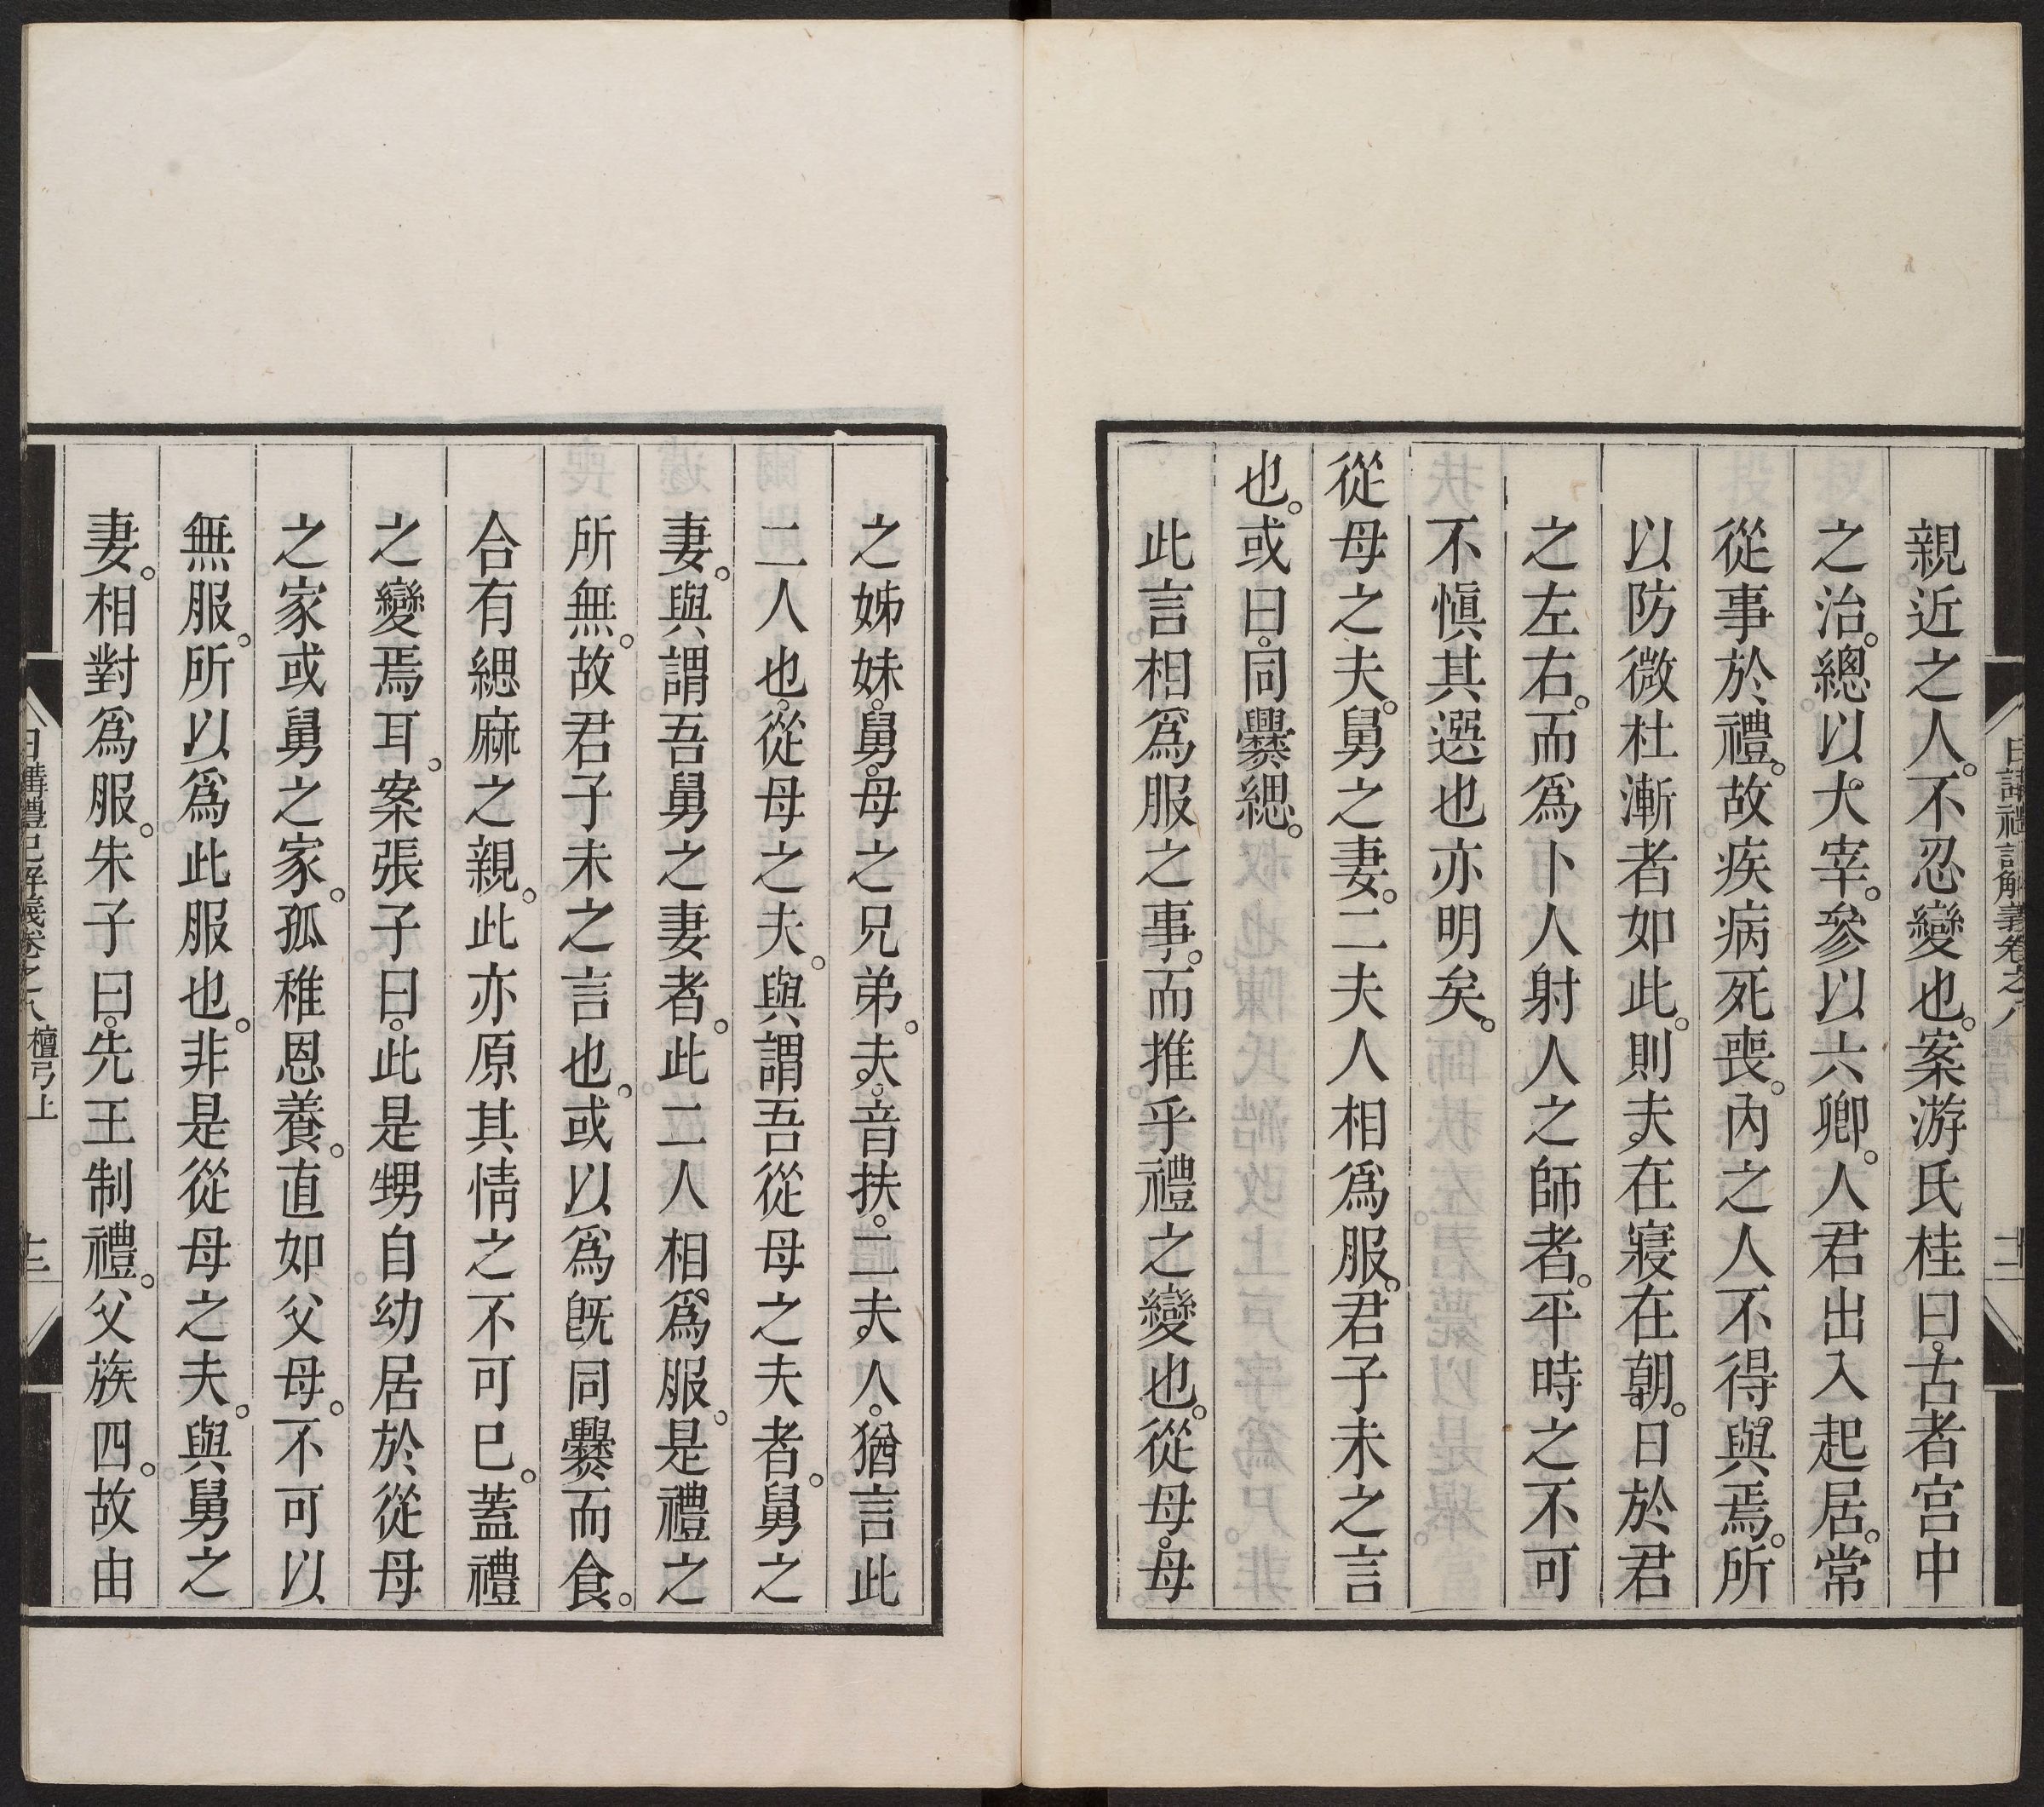 親近之人。不忍變也。案游氏桂曰。古者宮中
之治。總以大宰。參以六卿。人君出入起居。常
從事於禮。故疾病死喪。內之人不得與焉。所
以防微杜漸者如此。則夫在寢在朝。日於君
之左右。而爲卜人射人之師者。平時之不可
不愼其選也亦明矣。
從母之夫。舅之妻。二夫人相爲服。君子未之言
也。或曰。同爨緦。
此言相爲服之事。而推乎禮之變也。從母。母
日講禮記解義卷之八
十二
之姊妹。舅。母之兄弟。夫。音扶。二夫人。猶言此
二人也。從母之夫。與謂吾從母之夫者。舅之
妻。與謂吾舅之妻者。此二人相爲服。是禮之
所無。故君子未之言也。或以爲旣同爨而食。
合有緦麻之親。此亦原其情之不可已。蓋禮
之變焉耳。案張子曰。此是甥自幼居於從母
之家或舅之家。孤稚恩養。直如父母。不可以
無服。所以爲此服也。非是從母之夫。與舅之
妻。相對爲服。朱子曰。先王制禮。父族四。故由
日講禮記解義卷之八 檀弓上
十三